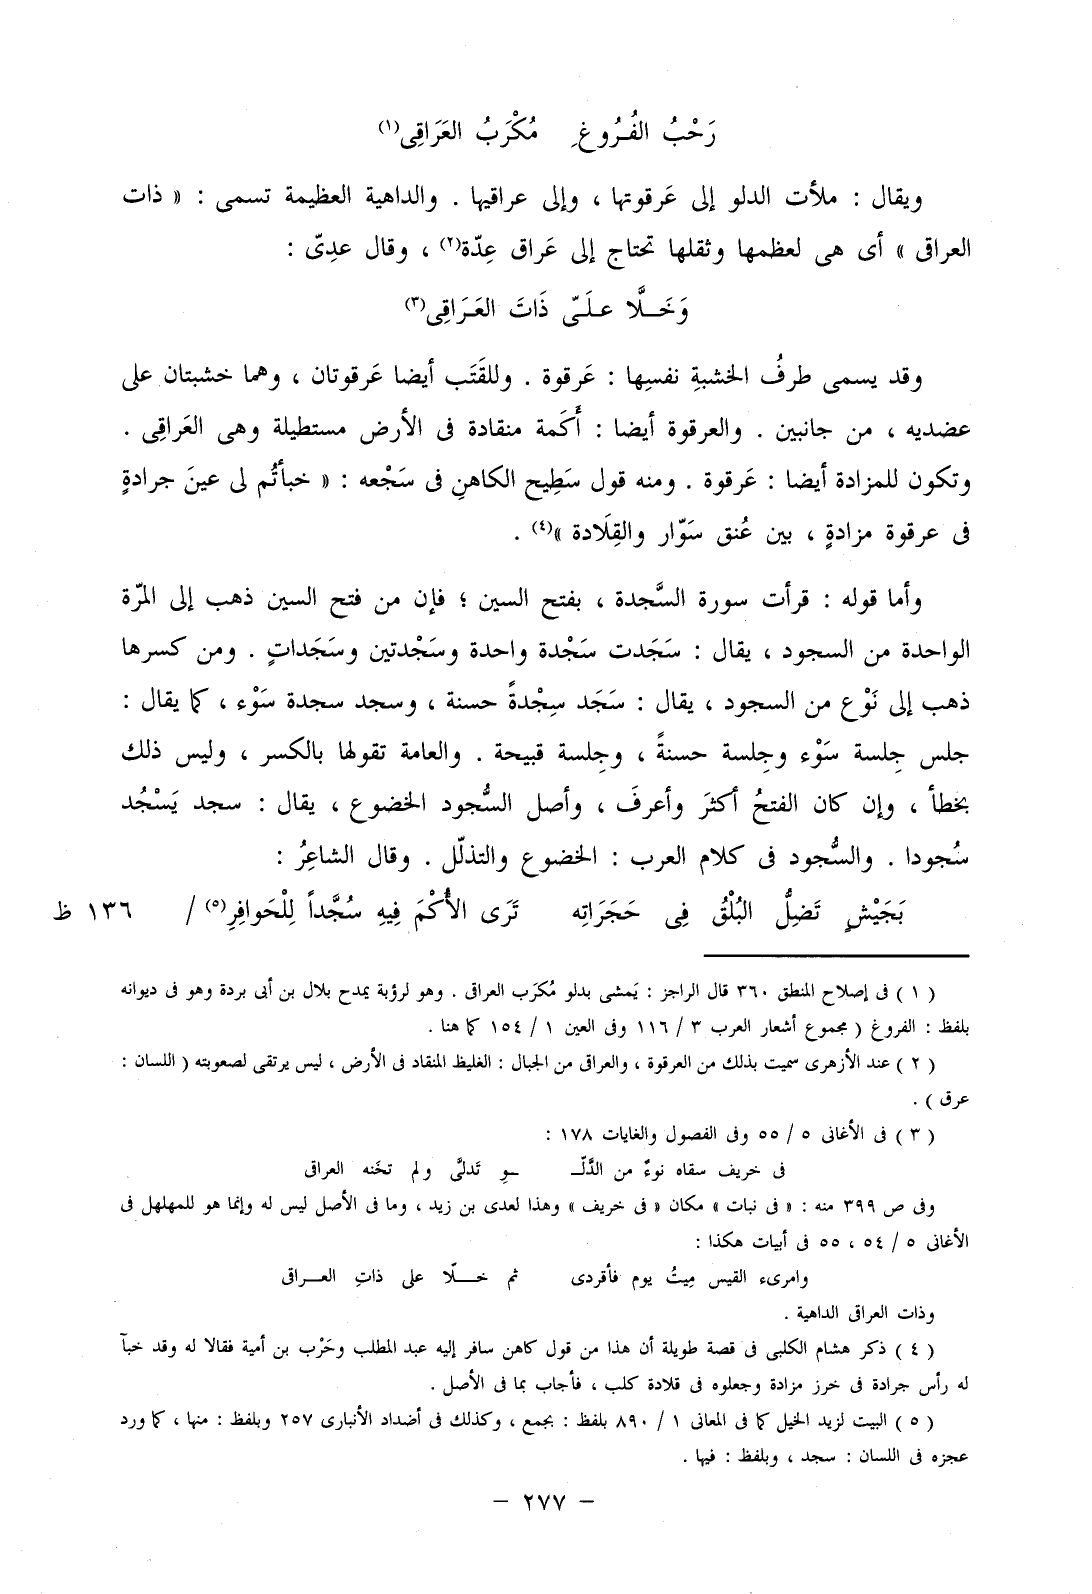 رَحْبُ الفُرُوغِ مُكْرَبُ العَرَاقِى(١)
ويقال : ملأت الدلو إلى عَرقوتها ، وإلى عراقيها . والداهية العظيمة تسمى : « ذات
العراقى » أى هى لعظمها وثقلها تحتاج إلى عَراق عِدّة(٢) ، وقال عدِىّ :
وَخَـلَّا علَـىّ ذَاتَ العَـرَاقِى(٣)
وقد يسمى طرفُ الخشبةِ نفسِها : عَرقوة . وللقَتَب أيضا عَرقوتان ، وهما خشبتان على
عضديه ، من جانبين . والعرقوة أيضا : أَكَمة منقادة فى الأرض مستطيلة وهى العَراقِى .
وتكون للمزادة أيضا : عَرقوة . ومنه قول سَطِيح الكاهنِ فى سَجْعه : « خبأتُم لى عينَ جرادةٍ
فى عرقوة مزادةٍ ، بين عُنق سَوّار والقِلَادة »(٤) .
وأما قوله : قرأت سورة السَّجدة ، بفتح السين ؛ فإن من فتح السين ذهب إلى المرّة
الواحدة من السجود ، يقال : سَجَدت سَجْدة واحدة وسَجْدتين وسَجَداتٍ . ومن كسرها
ذهب إلى نَوْع من السجود ، يقال : سَجَد سِجْدةً حسنة ، وسجد سجدة سَوْء ، كما يقال :
جلس جِلسة سَوْء وجِلسة حسنةً ، وجِلسة قبيحة . والعامة تقولها بالكسر ، وليس ذلك
بخطأ ، وإن كان الفتحُ أكثرَ وأعرفَ ، وأصل السُّجود الخضوع ، يقال : سجد يَسْجُد
سُجودا . والسُّجود فى كلام العرب : الخضوع والتذلّل . وقال الشاعِرُ :
بَجَيْشٍ تَضِلُّ البُلْقُ فِى حَجَرَاتِه تَرَى الأُكْمَ فِيهِ سُجَّداً لِلْحَوافِرِ(٥) / ١٣٦ ظ
( ١ ) فى إصلاح المنطق ٣٦٠ قال الراجز : يَمشى بدلو مُكرَب العراقى . وهو لرؤبة يمدح بلال بن أبى بردة وهو فى ديوانه
بلفظ : الفروغ ( مجموع أشعار العرب ٣ / ١١٦ وفى العين ١ / ١٥٤ كما هنا .
( ٢ ) عند الأزهرى سميت بذلك من العرقوة ، والعراقى من الجبال : الغليظ المنقاد فى الأرض ، ليس يرتقى لصعوبته ( اللسان :
عرق ) .
( ٣ ) فى الأغانى ٥ / ٥٥ وفى الفصول والغايات ١٧٨ :
فى خريف سقاه نوءٌ من الدَّلـ ـوِ تَدلىَّ ولم تخَنه العراقى
وفى ص ٣٩٩ منه : « فى نبات » مكان « فى خريف » وهذا لعدى بن زيد ، وما فى الأصل ليس له وإنما هو للمهلهل فى
الأغانى ٥ / ٥٤ ، ٥٥ فى أبيات هكذا :
وامرىء القيس مِيتُ يوم فأقردى ثم خـلّا على ذاتِ العـراقى
وذات العراقى الداهية .
( ٤ ) ذكر هشام الكلبى فى قصة طويلة أن هذا من قول كاهن سافر إليه عبد المطلب وحَرْب بن أمية فقالا له وقد خبآ
له رأس جرادة فى خرز مزادة وجعلوه فى قلادة كلب ، فأجاب بما فى الأصل .
( ٥ ) البيت لزيد الخيل كما فى المعانى ١ / ٨٩٠ بلفظ : بجمع ، وكذلك فى أضداد الأنبارى ٢٥٧ وبلفظ : منها ، كما ورد
عجزه فى اللسان : سجد ، وبلفظ : فيها .
– ٢٧٧ –